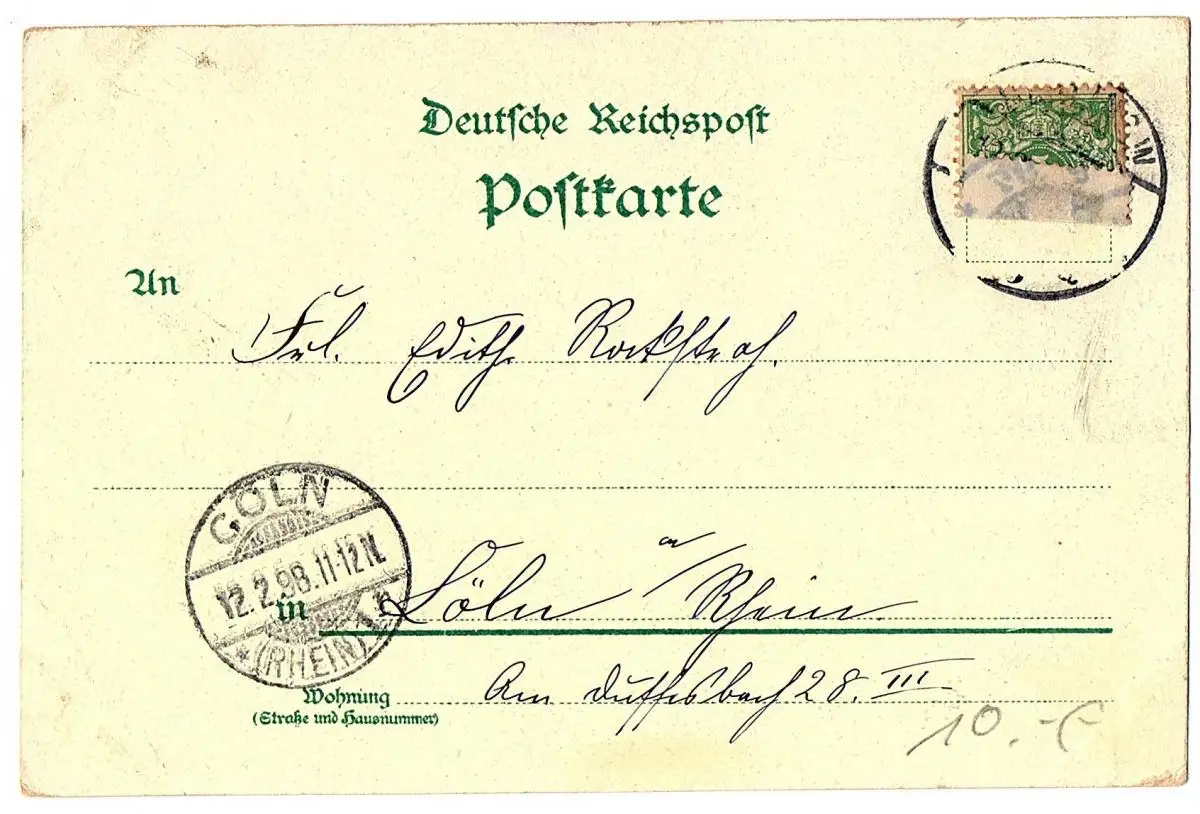 Deutsche Reichspost
Postkarte
An
Frl. Edith
CÖLN
12.2.98.11-12 N.
(RHEIN)
in Cöln a/Rhein.
Wohnung Am Duffesbach 28. III
(Straße und Hausnummer)
10.-€